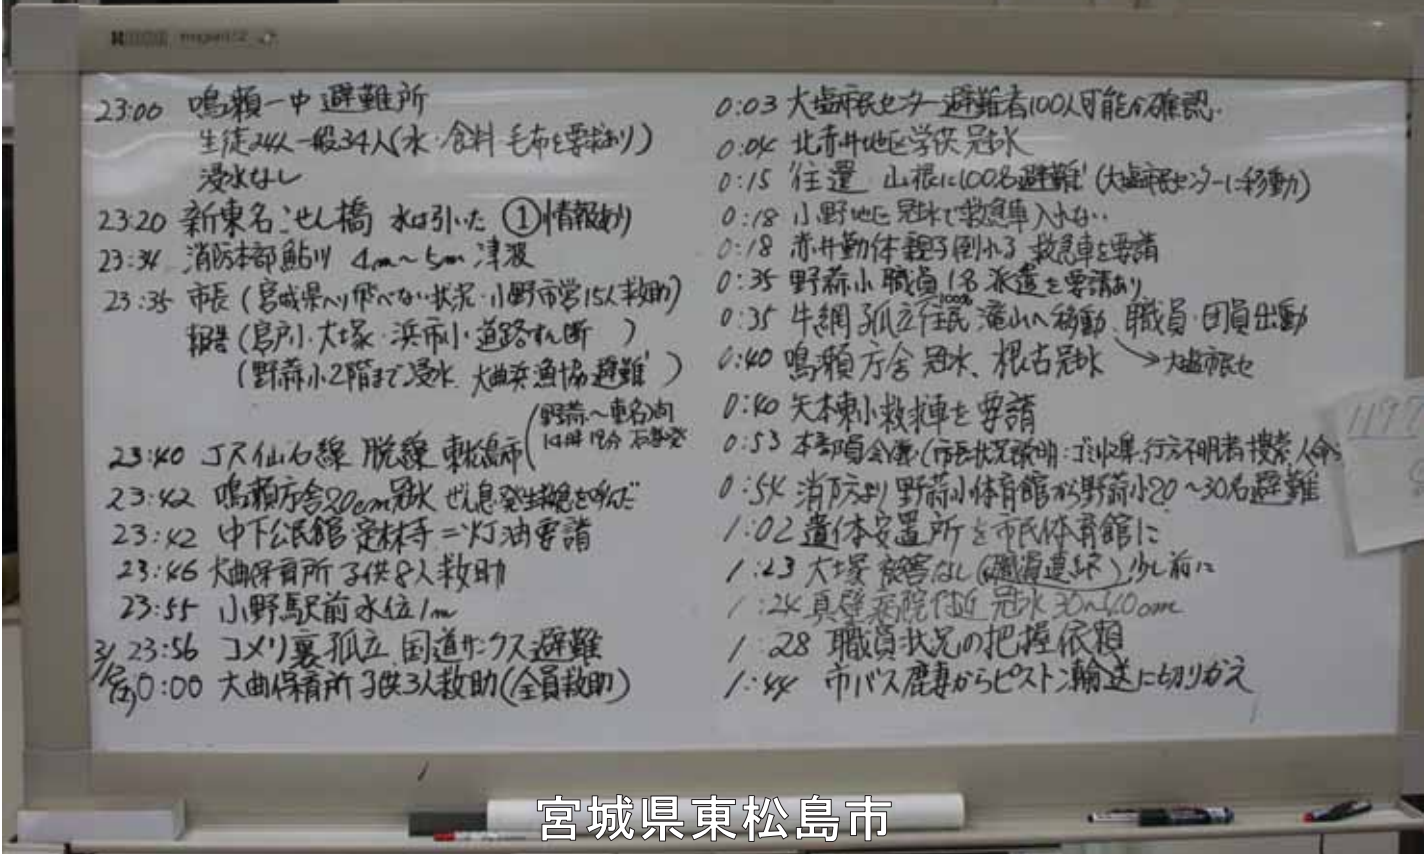 23:00 鳴瀬一中 避難所
生徒24人 一般34人(水・食料 毛布を要求あり)
浸水なし
23:20 新東名 こせん橋 水は引いた ①情報あり
23:34 消防本部 鮎川 4m〜5m 津波
23:35 市長(宮城県ヘリ飛べない状況・小野市営15人救助)
報告(宮戸小・大塚・浜市小・道路すん断 )
(野蒜小2階まで浸水、大曲浜漁協避難 )
(野蒜〜東名)向
23:40 JR仙石線 脱線 東松島市
23:42 鳴瀬庁舎20cm冠水 ぜん息発生 救急を呼んだ
23:42 中下公民館 定林寺=灯油要請
23:46 大曲保育所 子供8人救助
23:55 小野駅前 水位1m
23:56 コメリ裏孤立 国道サンクス避難
3/12
0:00 大曲保育所 子供3人救助(全員救助)
0:03 大塩市民センター避難者100人可能か確認.
0:04 北赤井地区学供冠水
0:15 往還 山根に100名避難(大塩市民センターに移動)
0:18 小野地区 冠水で救急車入れない
0:18 赤井勤体 親子倒れる 救急車を要請
0:35 野蒜小 職員1名 派遣を要請あり
0:35 牛網 孤立住民 滝山へ移動、職員・団員出動
100%
0:40 鳴瀬庁舎 冠水、根古冠水 →大塩市民セ
0:40 矢本東小救求車を要請
0:53 本部員会議(市長状況説明:ゴミ収集、行方不明者捜索、人命
0:54 消防より 野蒜小体育館から野蒜小20〜30名避難
1:02 遺体安置所を市民体育館に
1:23 大塚 被害なし(職員連絡)少し前に
1:24 真壁病院付近 冠水30〜40cm
1:28 職員状況の把握依頼
1:44 市バス鹿妻からピストン輸送に切りかえ
1197
宮城県東松島市